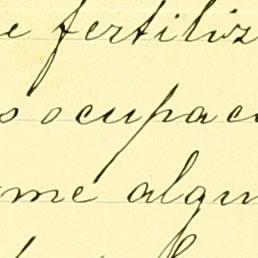 e fertiliz
s ocupac
me algun